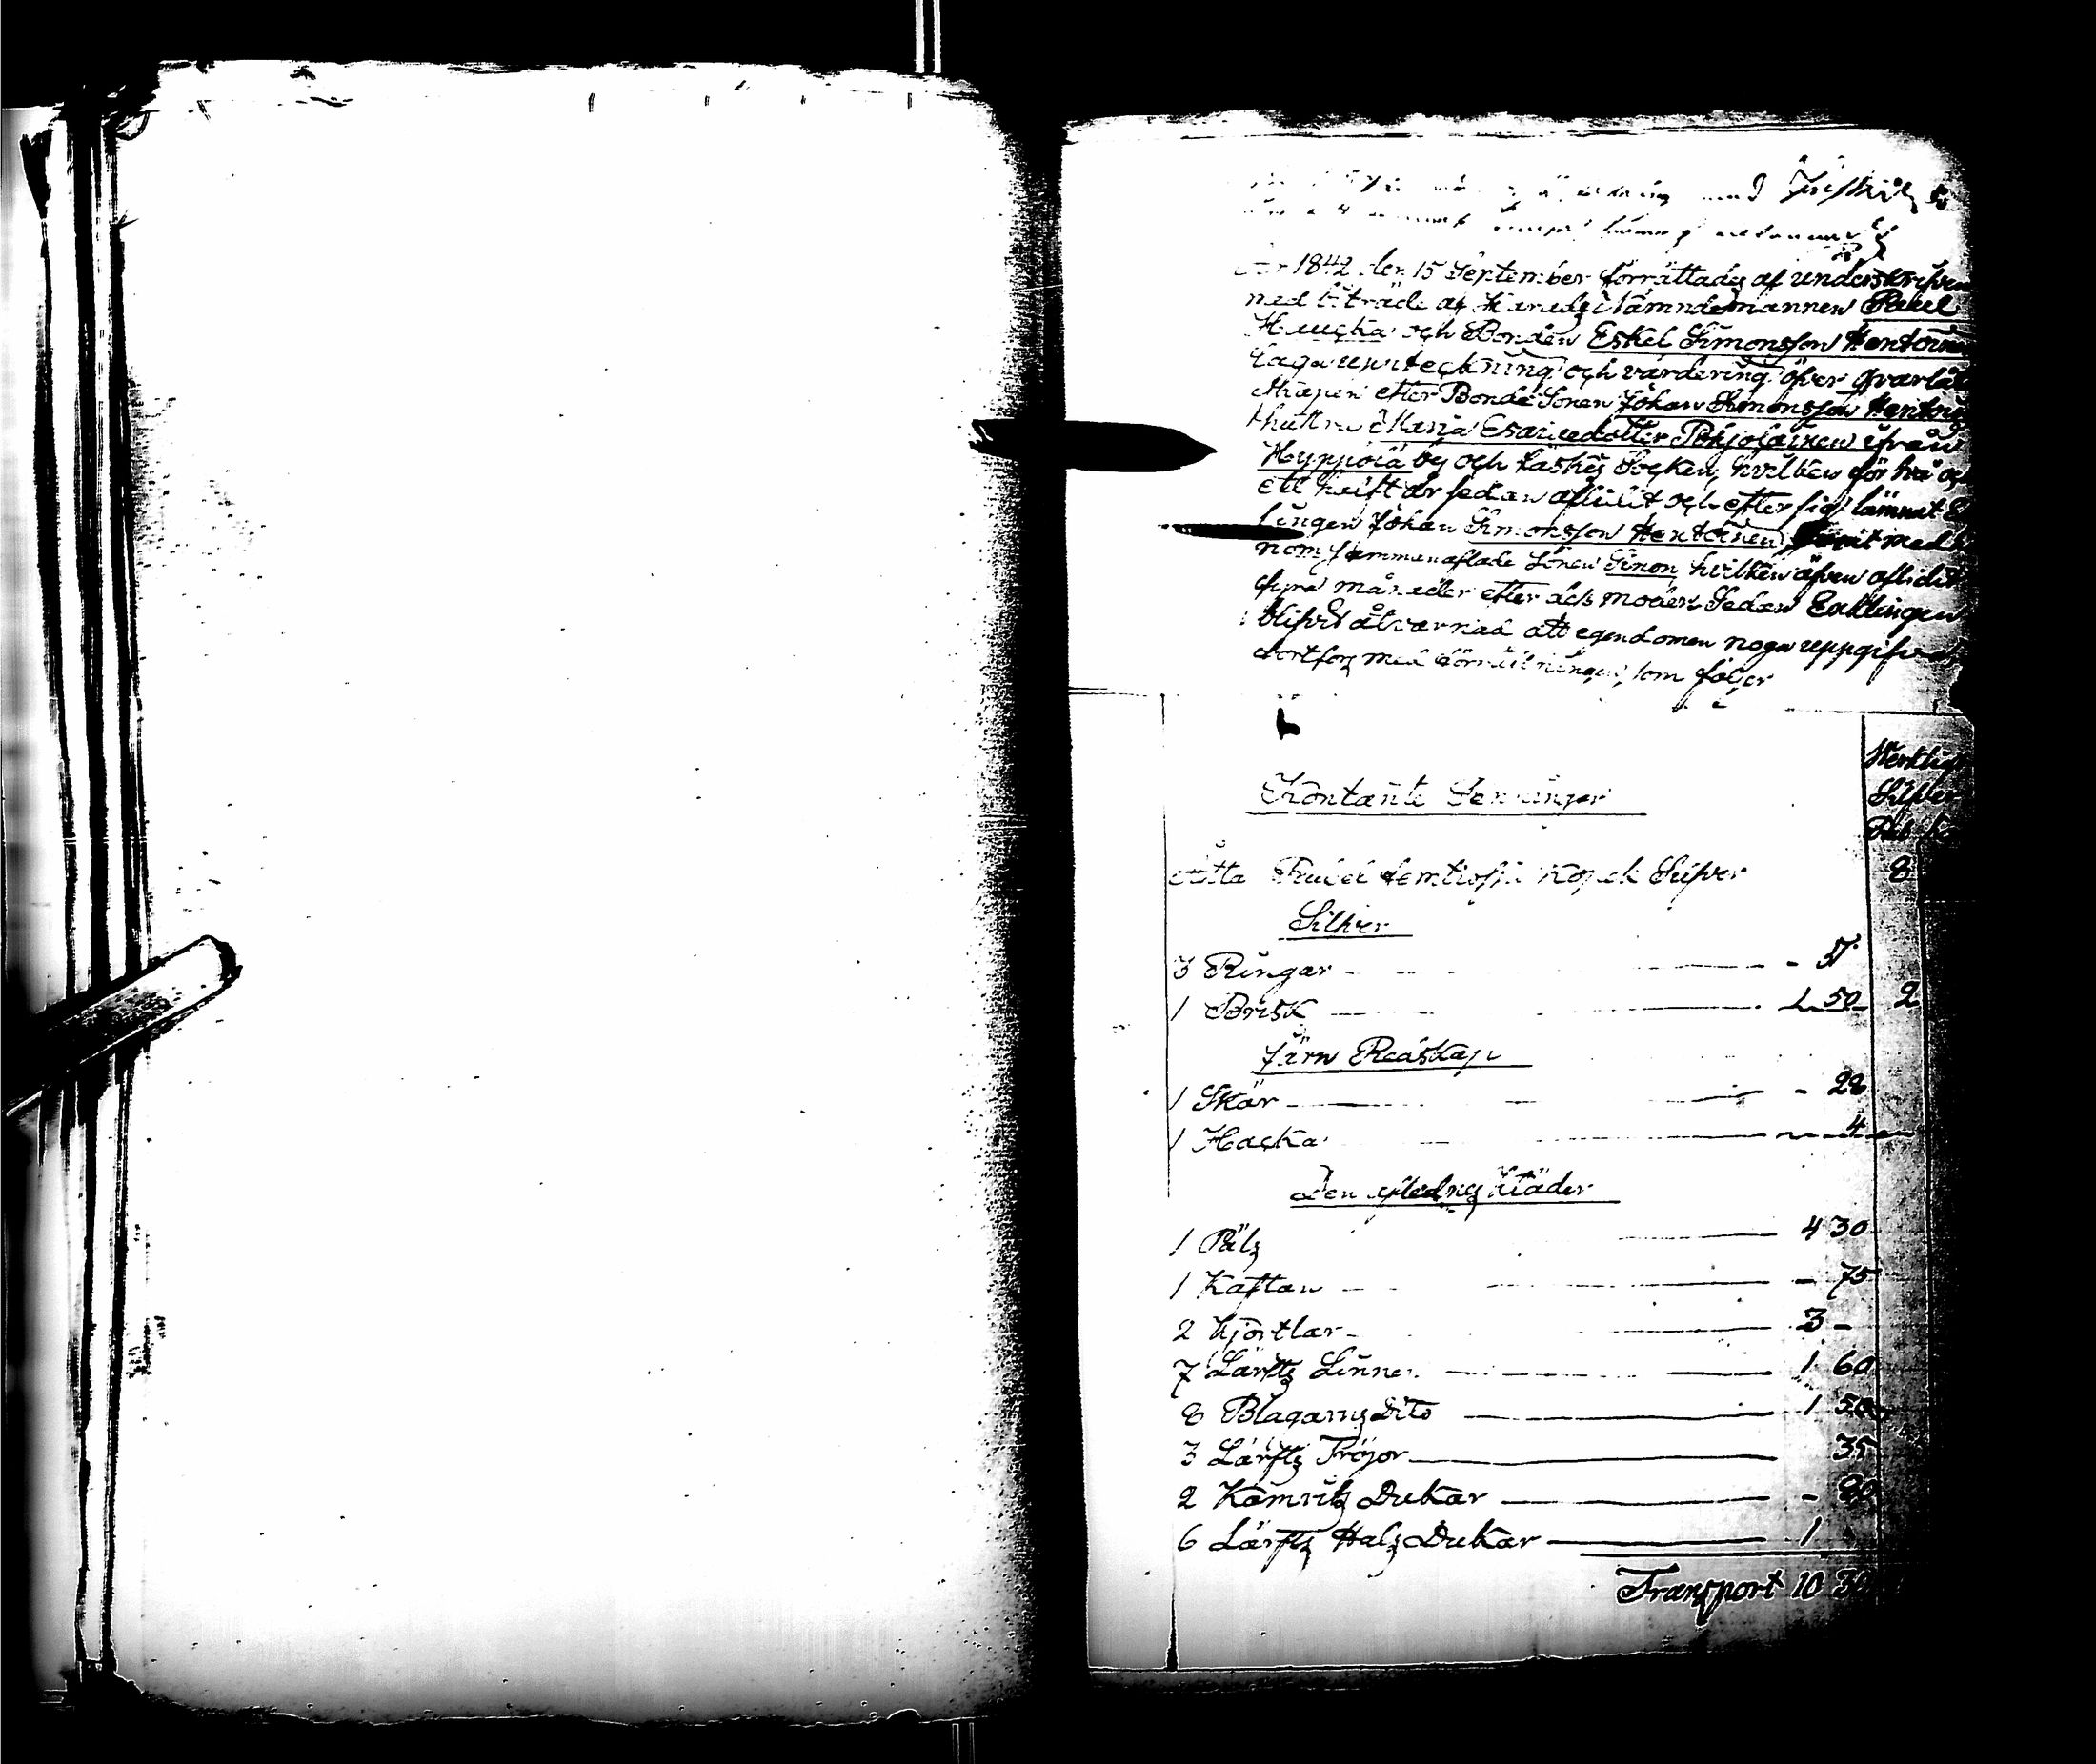 1842 den 15 September förrättades af underskrifven
med biträde af Härads Nämndemannen Påhl
Huuska och Bonden Eskel Simonsson Hentoinen
Laga uppteckning och värdering öfver qvarlåten
skapen efter Bonde Sonen Johan Simonsson Hentoinens
hustru Maria Esaiedotter Pohjolainen ifrån
Hyppölä by och Jaskis Socken, hvilken för två och
ett helft år sedan aflidit och efter sig lämnat
lingen Johan Simonsson Hentoinen, med
nom sammanaflade Sonen Simon hvilken äfven aflidit
fyra månader efter dess moder. Sedan Enklingen
blifvit åtvarnad att egendomen noga uppgifva
fortfors med förrättningen, som följer
Werkligt
Silfver
Rub. Ko
Kontante Penningar
Åtta Rubel femtiosju Kopek Silfver 8
Silfver
3 Ringar - 57
1 Brisk 1 50 2
Järn Redskap
1 Skär - 28
1 Hacka 4
Den aflednes Kläder
1 Päls 4 30
1 Kaftan - 75
2 Kjortlar 3 -
7 Lärfts Linne 1 60
8 Blagarns Dito 1 50
3 Lärfts Tröjor 35
2 Kamriks Dukar - 80
6 Lärfts Hals Dukar 1
Transport 10 30